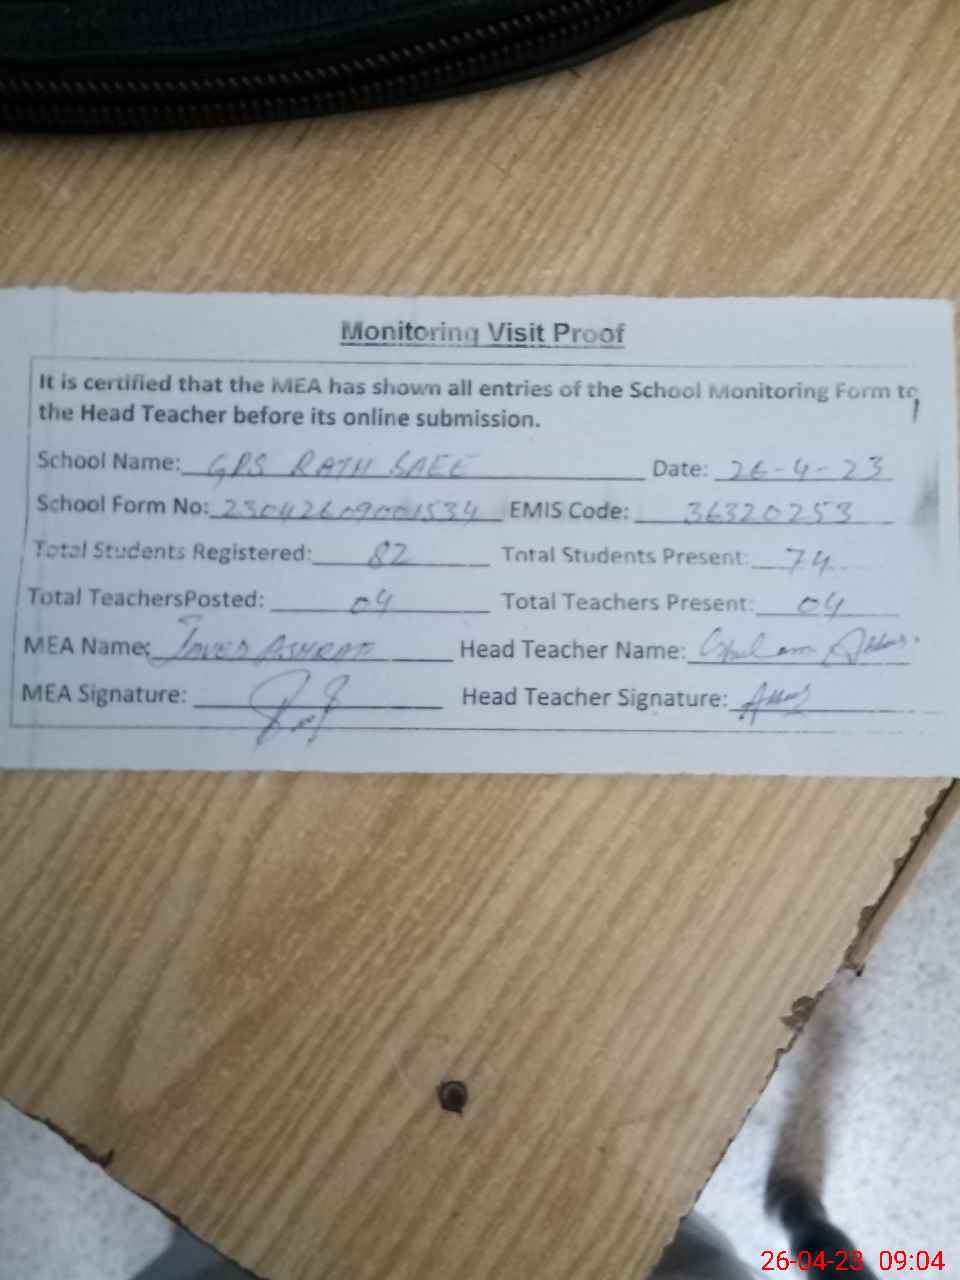 Monitoring Visit Proof
It is certified that the MEA has shown all entries of the School Monitoring Form to
the Head Teacher before its online submission.
School Name: GPS RATH Date: 26-4-23
School Form No: 23042609001534 EMIS Code: 36320253
Total Students Registered: 82 Total Students Present: 74
Total TeachersPosted: 04 Total Teachers Present: 04
MEA Name: Head Teacher Name: Ghulam Abbas
MEA Signature: Head Teacher Signature: Abbas
26-04-23 09:04